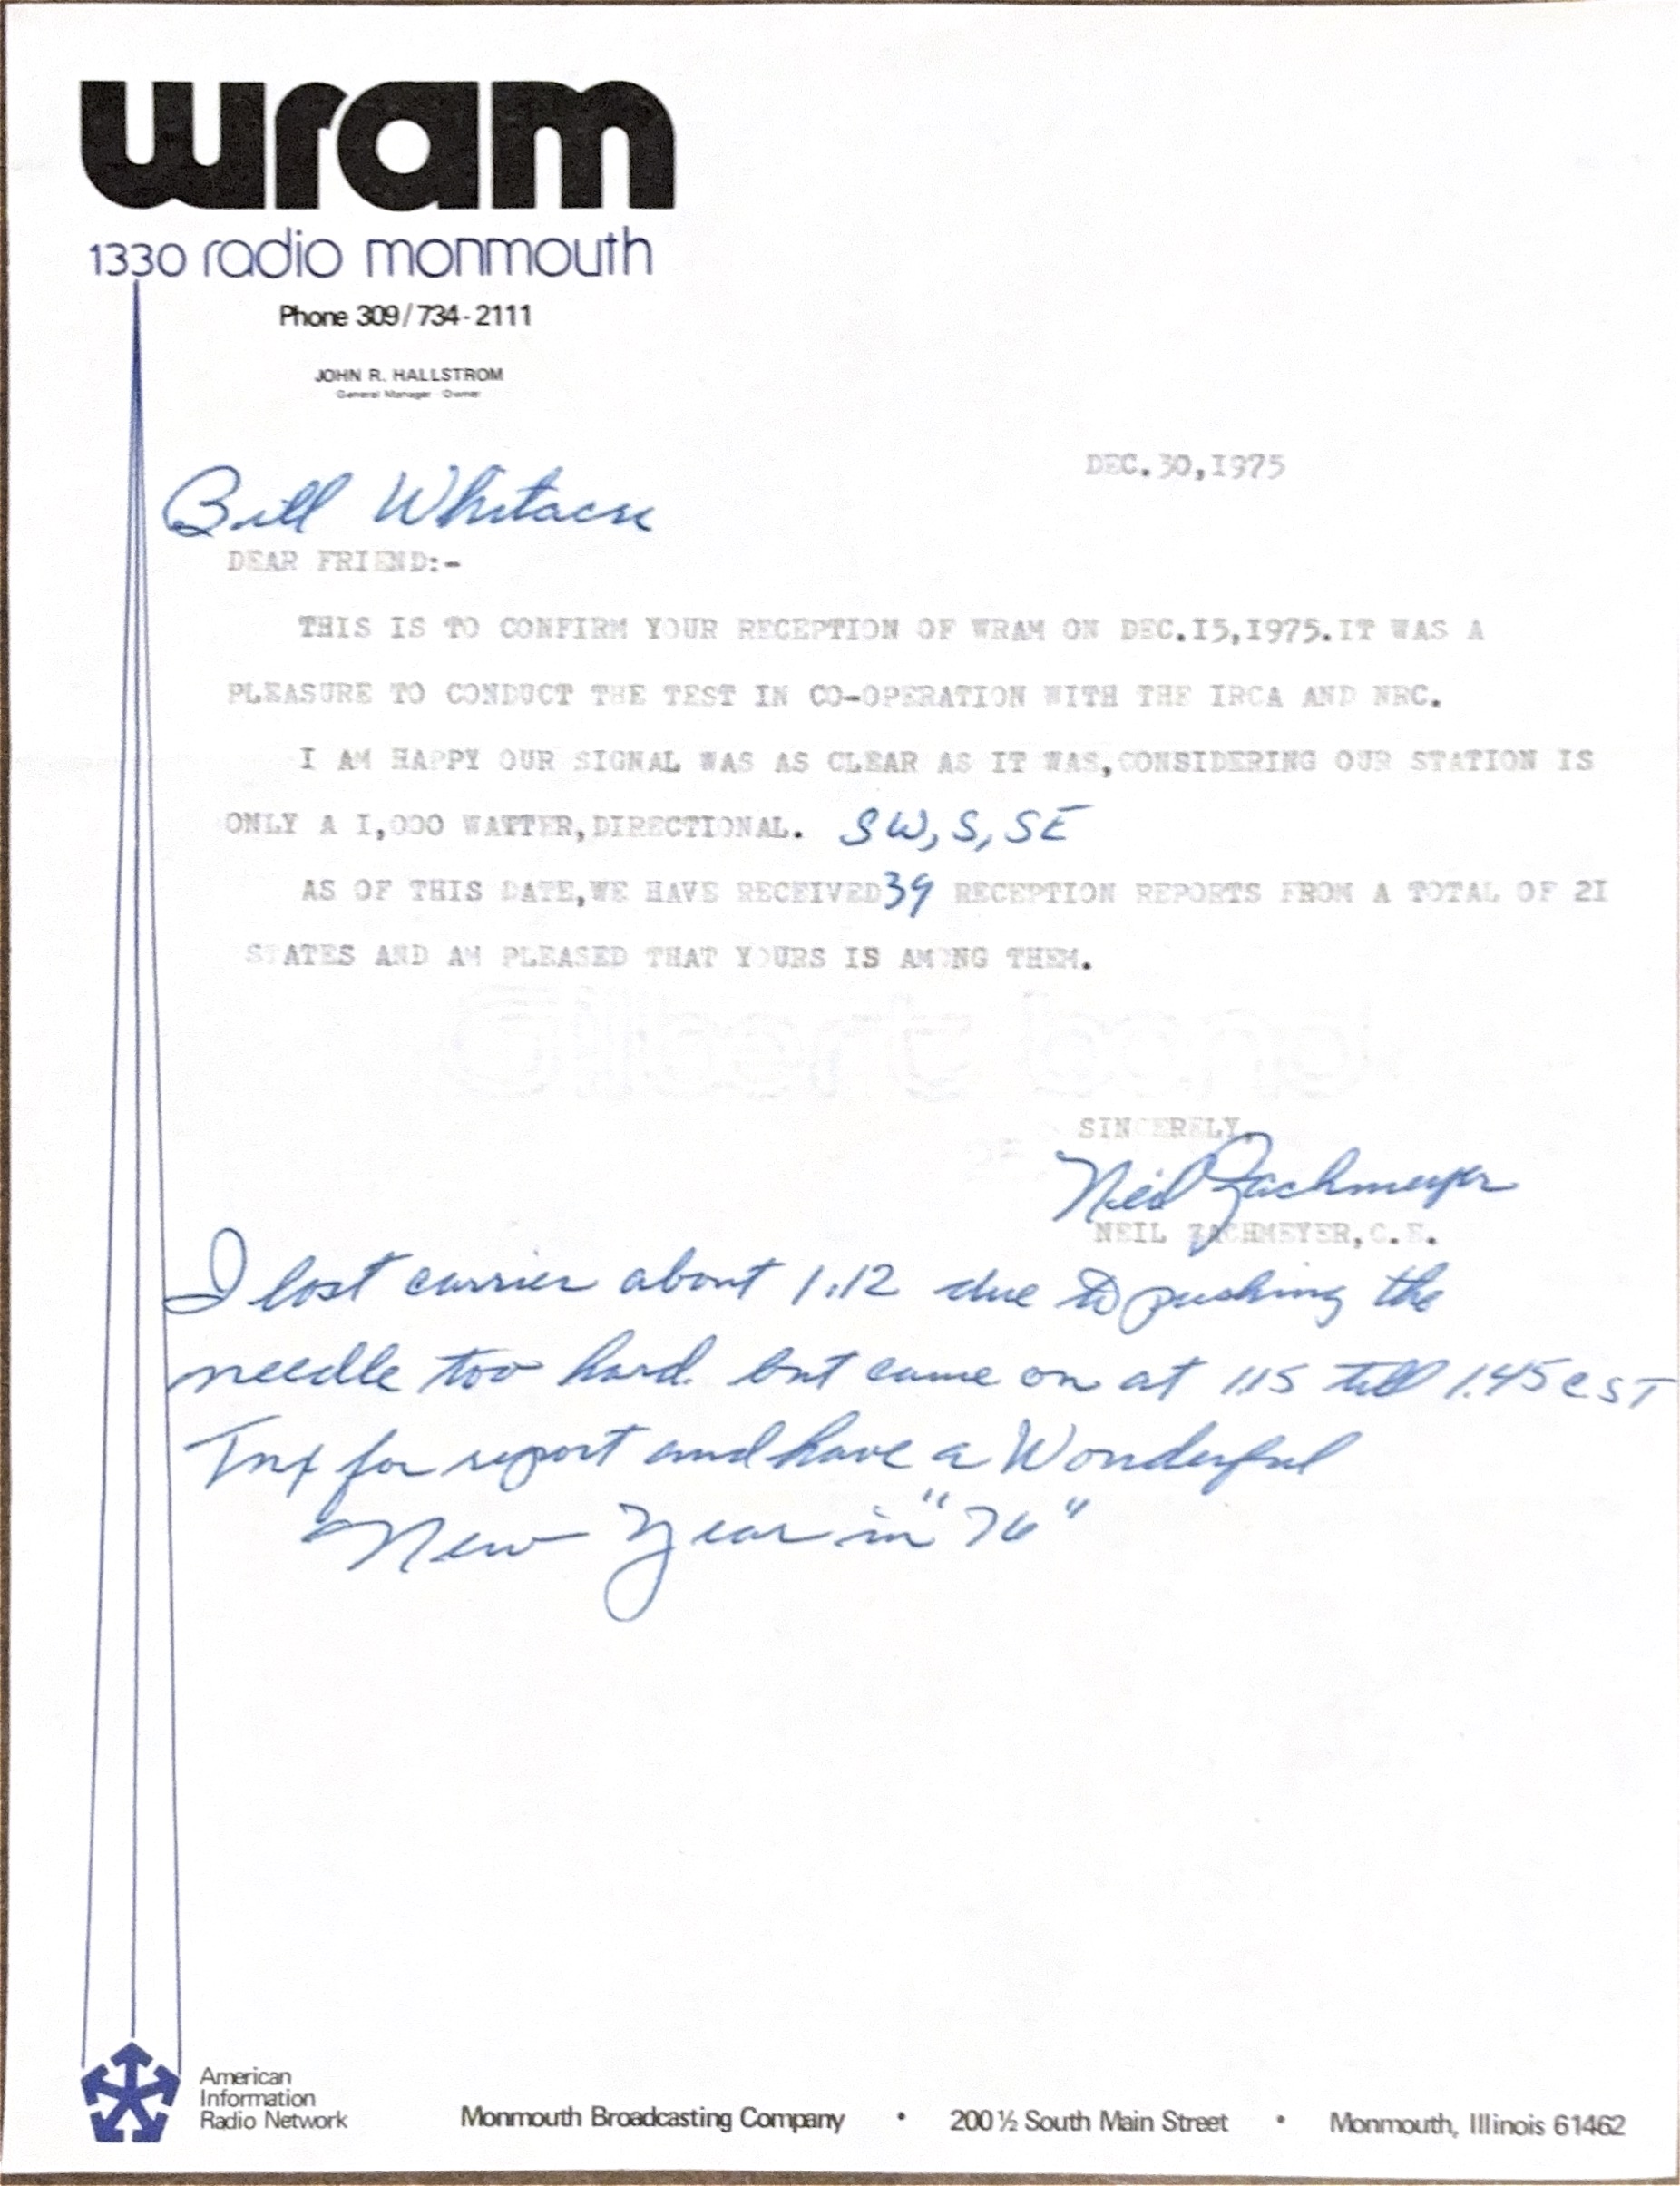 wram
1330 radio monmouth
Phone 309/734-2111
JOHN R. HALLSTROM
General Manager - Owner
DEC.30,1975
Bill Whitacre
DEAR FRIEND:-
THIS IS TO CONFIRM YOUR RECEPTION OF WRAM ON DEC.I5,1975.IT WAS A
PLEASURE TO CONDUCT THE TEST IN CO-OPERATION WITH THE IRCA AND NRC.
I AM HAPPY OUR SIGNAL WAS AS CLEAR AS IT WAS,CONSIDERING OUR STATION IS
ONLY A I,000 WATTER,DIRECTIONAL. SW, S, SE
AS OF THIS DATE,WE HAVE RECEIVED 39 RECEPTION REPORTS FROM A TOTAL OF 2I
STATES AND AM PLEASED THAT YOURS IS AMONG THEM.
Gilbert bond
SINCERELY,
Neil Zachmeyer
NEIL ZACHMEYER,C.E.
I lost carrier about 1:12 due to pushing the
needle too hard. but came on at 1:15 till 1:45 CST
Tnx for report and have a Wonderful
New Year in "76"
American
Information
Radio Network
Monmouth Broadcasting Company • 200 ½ South Main Street • Monmouth, Illinois 61462